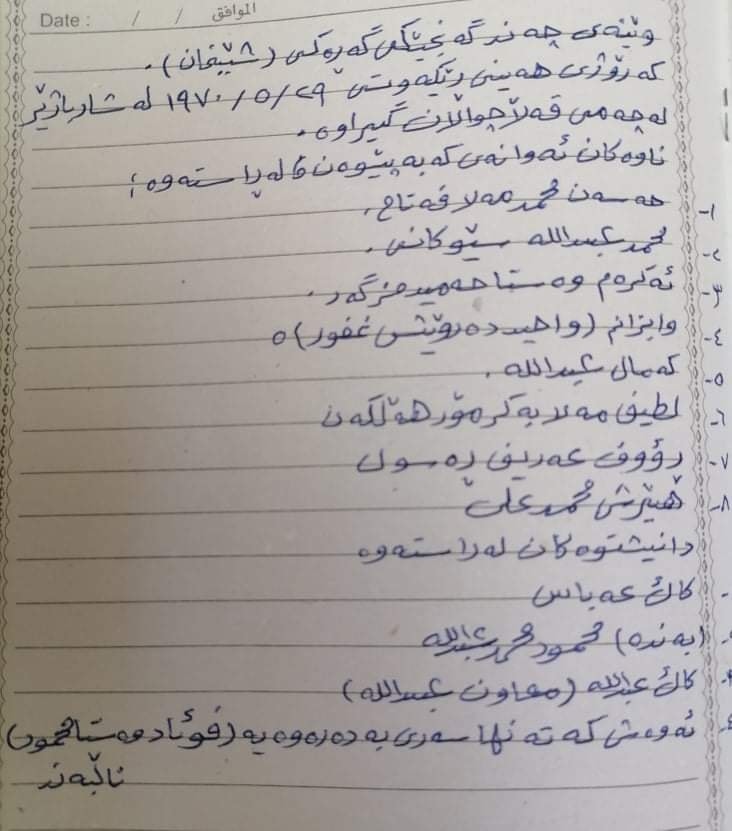 Date : / / الموافق
وێنەی چەند گەنجێکی گەرەکی (شێخان).
کە رۆژی هەینی رێکەوتی ١٩٧٠/٥/٢٩ لە شارباژێر
لە چەمی قەڵاچواڵان گیراوە.
ناوەکان ئەوانەی کە بە پێوەن فا لە ڕاستەوە؛
١- حەسەن محمد مەلا فەتاح.
٢- محمد عبدالله سێوکانی.
٣- ئەکرەم وەستا حەمید مزگەر.
٤- وابزانم (واحید دەروێش غفور)ە
٥- کەمال عبدالله.
٦- لطیف مەلا بەکر مۆر هەڵکەن
٧- رؤوف عەریف رەسول
٨- هێرش محمد علی
دانیشتوەکان لەڕاستەوە
کاك عەباس
(بەندە) محمود محمد عبدالله
کاك عبدالله (معاون عبدالله)
ئەوەش کە تەنها سەری بە دەرەوەیە (فوئاد وەستا محمود)
ناڵبەند